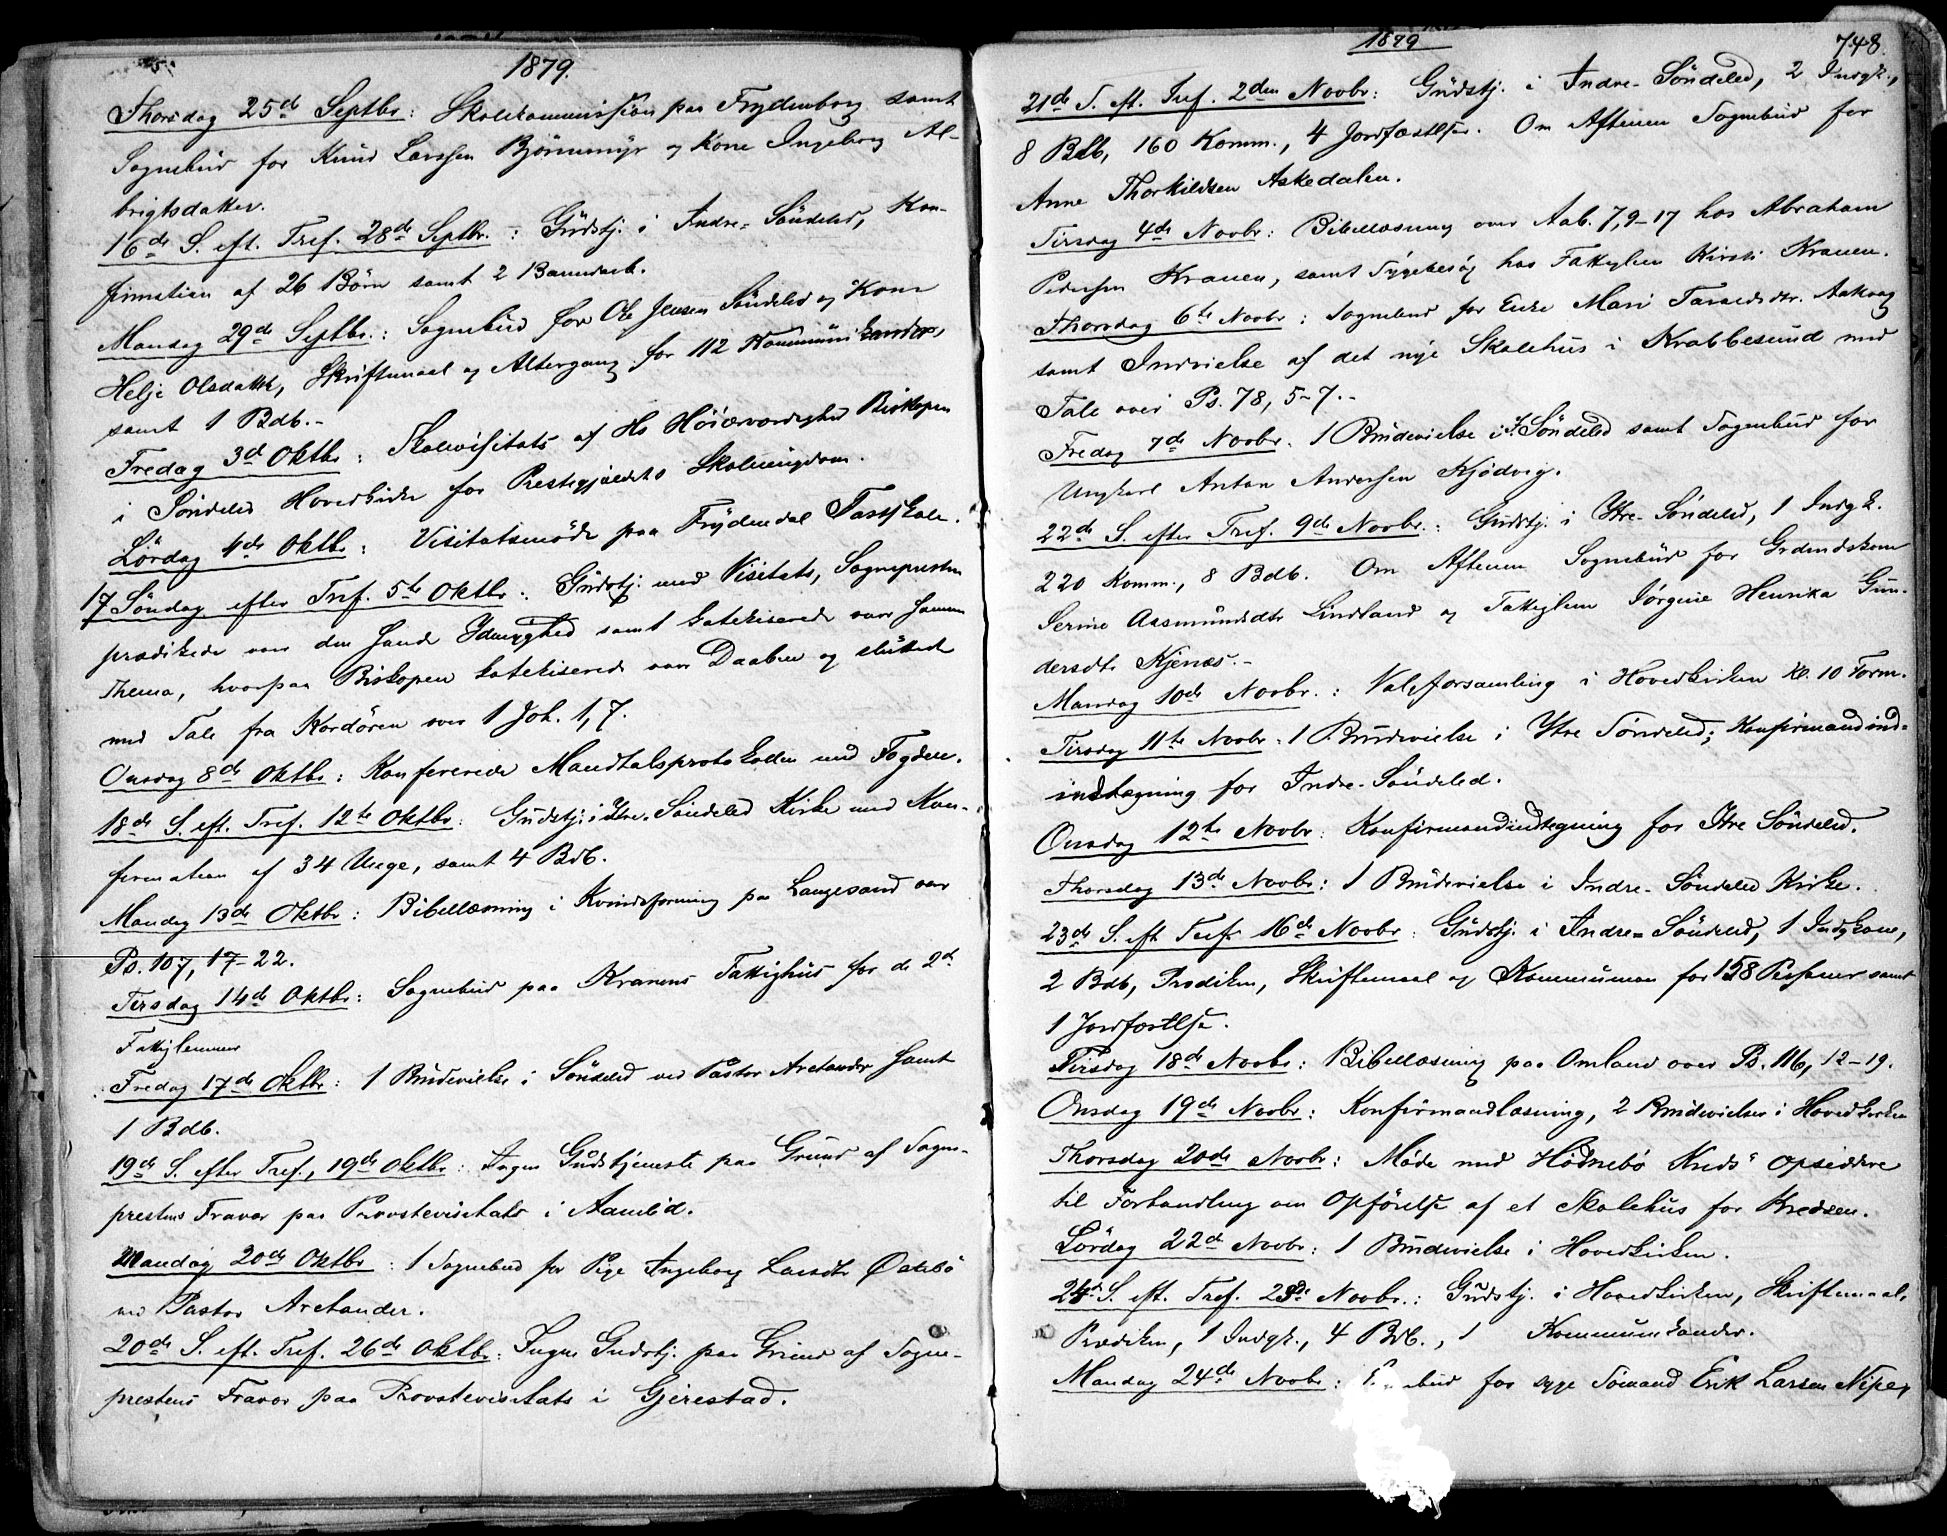 1879.
Thorsdag 25de Septbr: Skolekommission paa Frydenborg samt
Sognebud for Knud Larssen Bjørnemyr og Kone Ingeborg Al-
brigtsdatter.
16de S. eft. Tref. 28de Septbr.: Gudstj. i Indre-Søndeled, Kon-
firmation af 26 Børn samt 2 Barnedaab.
Mandag 29de Septbr.: Sognebud for Ole Jensen Søndeled og Kone
Helje Olsdatter, Skriftemaal og Altergang for 112 Kommunikanter
samt 1 Bdb.-
Fredag 3de Oktbr: Skolevisitats af Hs Høiærværdighed Biskopen
i Søndeled Hovedkirke for Prestegjældets Skoleungdom.
Lørdag 4de Oktbr: Visitatsmøde paa Frydendal Fastskole.
17 Søndag efter Tref. 5te Oktbr: Gudstj. med Visitats, Sognepresten
prædikede over den sande Ydmyghed samt katekiserede over samme
Thema, hvorpaa Biskopen katekiserede over Daaben og sluttede
med Tale fra Kordøren over 1 Joh. 1,7.
Onsdag 8de Oktbr: Konfererede Mandtalsprotokollen med Fogden.
18de S. eft. Tref. 12te Oktbr: Gudstj. i Ytre-Søndeled Kirke med Kon-
firmation af 34 Unge, samt 4 Bdb.
Mandag 13de Oktbr: Bibellæsning i Kvindeforening paa Langesand over
Ps. 107, 17-22.
Tirsdag 14de Oktbr: Sognebud paa Kranens Fattighus for de 2de
Fattiglemmer
Fredag 17de Oktbr: 1 Brudevielse i Søndeled ved Pastor Arctander samt
1 Bdb.
19de S. efter Tref., 19de Oktbr: Ingen Gudstjeneste paa Grund af Sogne-
prestens Fravær paa Provstevisitats i Aamlid.
Mandag 20de Oktbr: 1 Sognebud for Pige Ingeborg Larsdtr Øakebø
ved Pastor Arctander.
20de S. eft. Tref. 26de Oktbr: Ingen Gudstj. paa Grund af Sogne-
prestens Fravær paa Provstevisitats i Gjerestad.
1879
748.
21de S. eft. Tref. 2den Novbr: Gudstj. i Indre-Søndeled, 2 Indgk.,
8 Bdb, 160 Komm., 4 Jordfæstelser. Om Aftenen Sognebud for
Anne Thorkildsen Askedalen.
Tirsdag 4de Novbr: Bibellæsning over Aab. 7,9-17 hos Abraham
Pedersen Kranen, samt Sygebesøg hos Fattiglem Kirsti Kranen.
Thorsdag 6te Novbr: Sognebud for Enke Mari Taraldsdtr. Aakvaag
samt Indvielse af det nye Skolehus i Krabbesund med
Tale over Ps. 78, 5-7.-
Fredag 7de Novbr. 1 Brudevielse i I. Søndeled samt Sognebud for
Ungkarl Anton Andersen Kjødvig.
22de S. efter Tref. 9de Novbr.: Gudstj. i Ytre-Søndeled, 1 Indgk.
220 Komm., 8 Bdb. Om Aftenen Sognebud for Grdmdskone
Serine Aasmundsdtr Lindland og Fattiglem Jørgine Henrika Gun-
dersdtr Kjenæs.-
Mandag 10de Novbr.: Valgforsamling i Hovedkirken Kl. 10 Form.
Tirsdag 11te Novbr. 1 Brudevielse i Ytre Søndeled; Konfirmandind-
indtegning for Indre-Søndeled.
Onsdag 12te Novbr: Konfirmandindtegning for Ytre Søndeled.
Thorsdag 13de Novbr: 1 Brudevielse i Indre-Søndeled Kirke.
23de S. eft Tref. 16de Novbr: Gudstj. i Indre-Søndeled, 1 Indgkone,
2 Bdb, Prædiken, Skriftemaal og Kommunion for 158 Personer samt
1 Jordfæstelse.
Tirsdag 18de Novbr: Bibellæsning paa Omland over Ps. 116, 12-19.
Onsdag 19de Novbr: Konfirmandlæsning, 2 Brudevielser i Hovedkirken
Thorsdag 20de Novbr: Møde med Hødnebø Kreds' Opsiddere
til Forhandling om Opførelse af et Skolehus for Kredsen.
Lørdag 22de Novbr: 1 Brudevielse i Hovedkirken.
24de S. eft. Tref. 23de Novbr.: Gudstj. i Hovedkirken, Skriftemaal,
Prædiken, 1 Indgk., 4 Bdb., 1 Kommunikander.
Mandag 24de Novbr: bud for syge Sømand Erik Larsen Nipe,